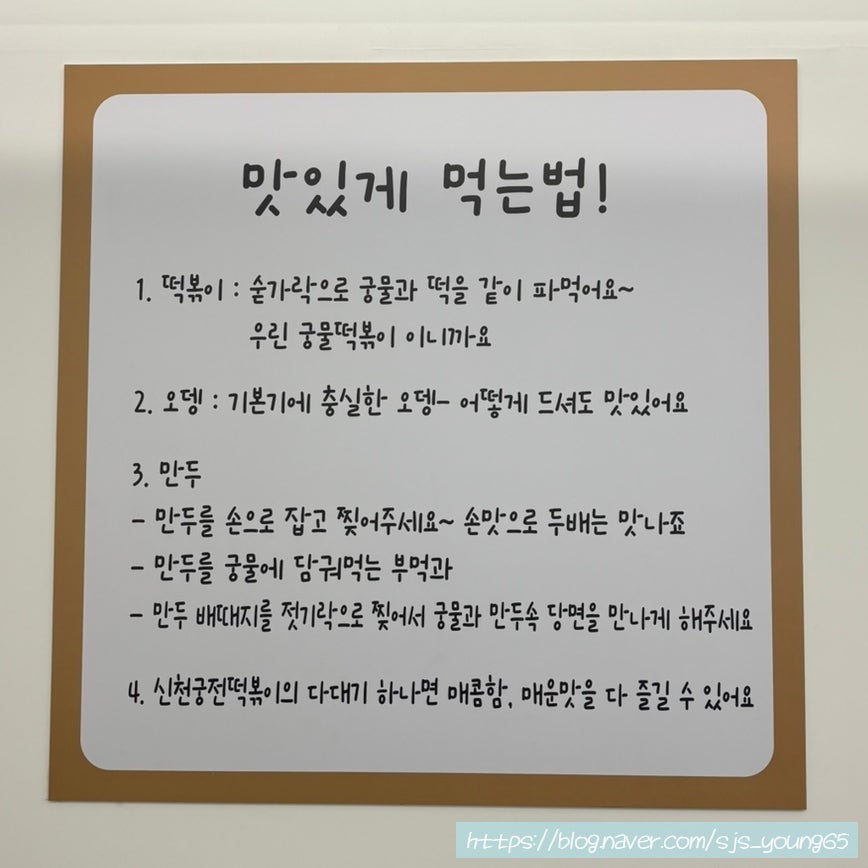 맛있게 먹는법!
1. 떡볶이 : 숟가락으로 궁물과 떡을 같이 파먹어요~
우린 궁물떡볶이 이니까요
2. 오뎅 : 기본기에 충실한 오뎅- 어떻게 드셔도 맛있어요
3. 만두
- 만두를 손으로 잡고 찢어주세요~ 손맛으로 두배는 맛나죠
- 만두를 궁물에 담궈먹는 부먹과
- 만두 배때지를 젓기락으로 찢어서 궁물과 만두속 당면을 만나게 해주세요
4. 신천궁전떡볶이의 다대기 하나면 매콤함, 매운맛을 다 즐길 수 있어요
https://blog.naver.com/sjs_young65